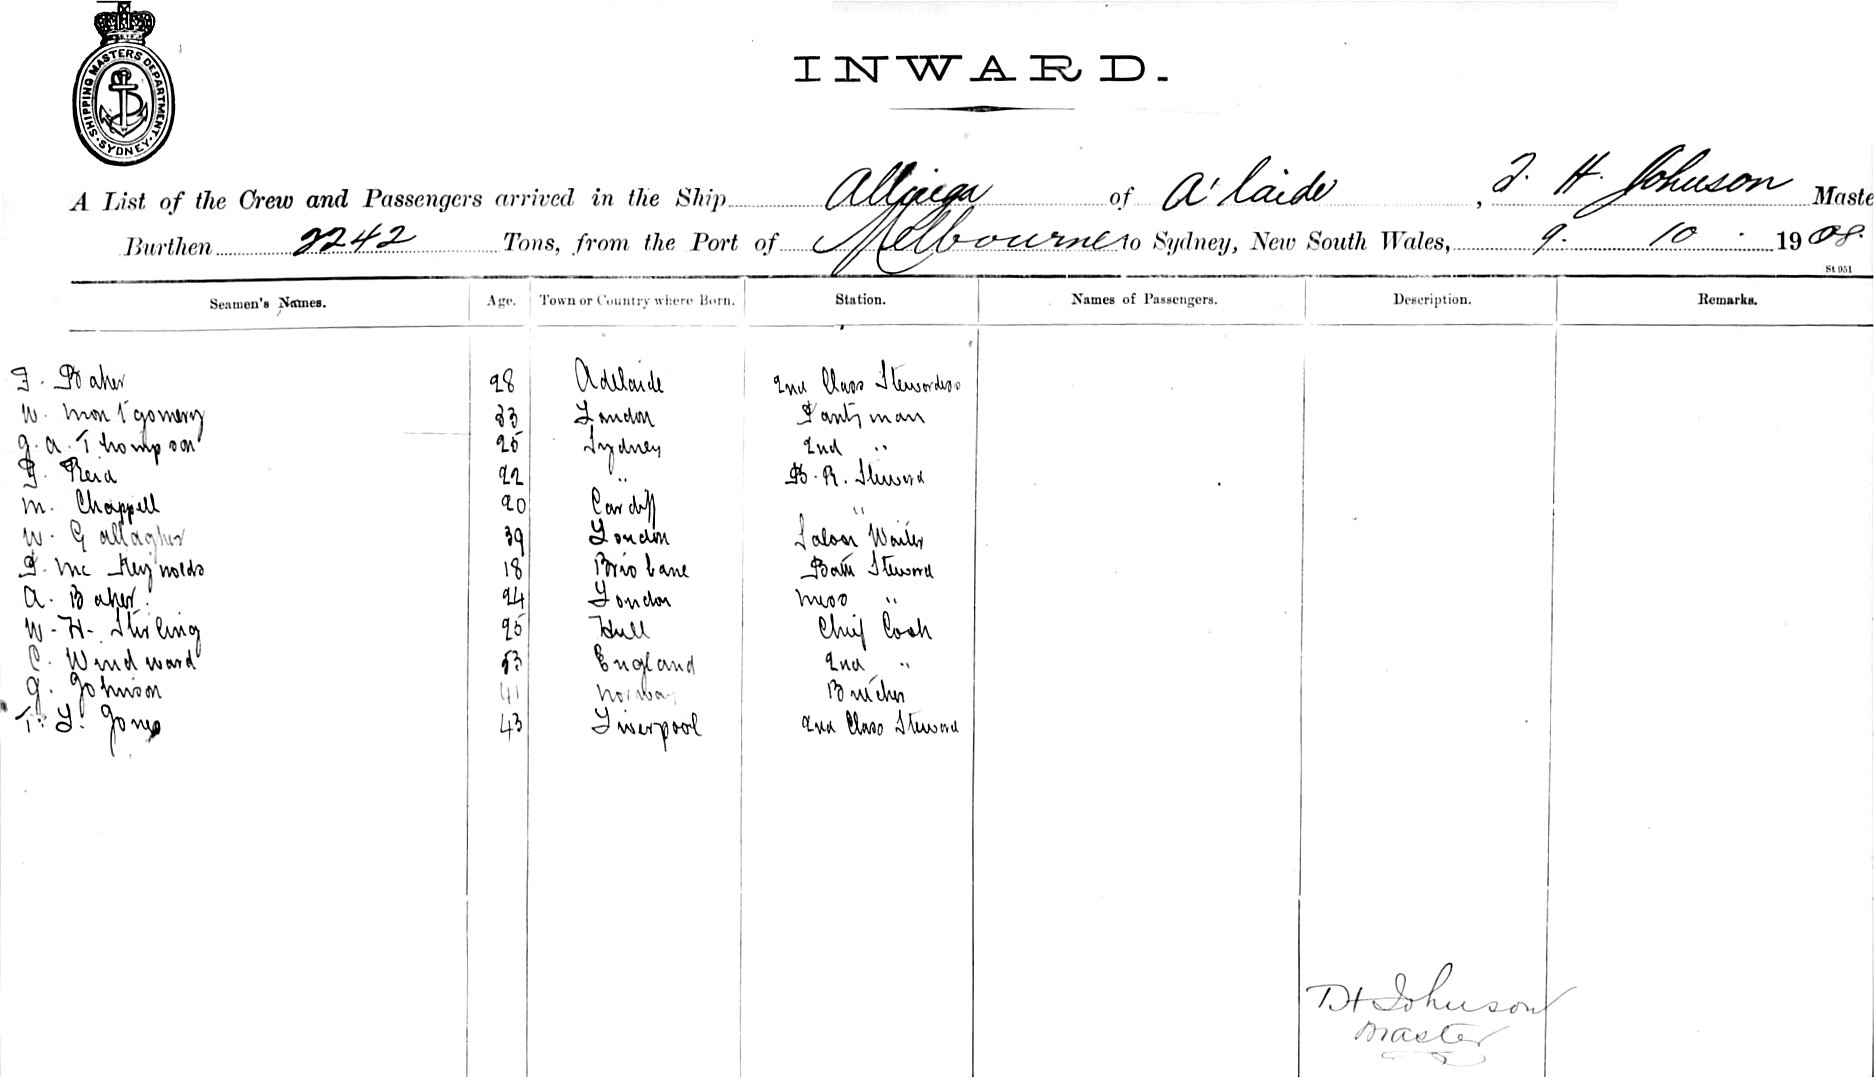 SHIPPING MASTERS DEPARTMENT SYDNEY
INWARD.
A List of the Crew and Passengers arrived in the Ship Allinga of A'laide, T. H. Johnson Maste
Burthen 2242 Tons, from the Port of Melbourne to Sydney, New South Wales, 9. 10. 1908.
St 951
Seamen's Names. Age. Town or Country where Born. Station. Names of Passengers. Description. Remarks.
F. Baker 28 Adelaide 2nd Class Stewardess
W. Montgomery 33 London Pantryman
G. A. Thompson 25 Sydney 2nd "
Reid 22 " B. R. Steward
M. Chappell 20 Cardiff "
W. Gallagher 39 London Saloon Waiter
Mc Reynolds 18 Brisbane Bath Steward
A. Baker. 24 London Mess "
W. H. Stirling 25 Hull Chief Cook
C. Windward 53 England 2nd "
G. Johnson 41 Norway Butcher
T. Y. Jones 43 Liverpool 2nd Class Steward
TH Johnson
Master